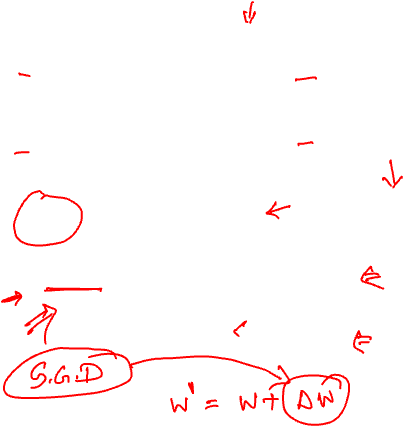 S.G.D
W' = W + ΔW